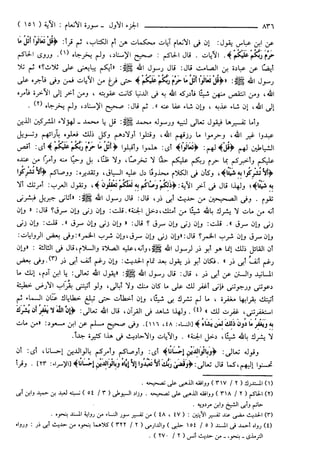 ٨٣٦ الجزء الأول - سورة الأنعام : الآية ( ١٥١ )
عن ابن عباس يقول: إن في الأنعام آيات محكمات هن أم الكتاب، ثم قرأ: ﴿قُلْ تَعَالَوْا أَتْلُ مَا
حَرَّمَ رَبُّكُمْ عَلَيْكُمْ﴾. الآيات. قال الحاكم: صحيح الإسناد، ولم يخرجاه (١). وروى الحاكم
أيضاً عن عبادة بن الصامت قال: قال رسول الله ﷺ: «أيكم يبايعني على ثلاث؟» ثم تلا
رسول الله ﷺ: «﴿قُلْ تَعَالَوْا أَتْلُ مَا حَرَّمَ رَبُّكُمْ عَلَيْكُمْ﴾ حتى فرغ من الآيات فمن وفى فأجره على
الله، ومن انتقص منهن شيئاً فأدركه الله به في الدنيا كانت عقوبته ، ومن أخر إلى الآخرة فأمره
إلى الله، إن شاء عذبه ، وإن شاء عفا عنه ». ثم قال: صحيح الإسناد، ولم يخرجاه (٢) .
وأما تفسيرها فيقول تعالى لنبيه ورسوله محمد: ﷺ: قل يا محمد - لهؤلاء المشركين الذين
عبدوا غير الله، وحرموا ما رزقهم الله، وقتلوا أولادهم وكل ذلك فعلوه بآرائهم وتسويل
الشياطين لهم ﴿قُلْ﴾ لهم: ﴿تَعَالَوْا﴾ أي: هلموا وأقبلوا ﴿أَتْلُ مَا حَرَّمَ رَبُّكُمْ عَلَيْكُمْ﴾ أي: أقص
عليكم وأخبركم بما حرم ربكم عليكم حقاً لا تخرصاً، ولا ظناً، بل وحياً منه وأمراً من عنده
﴿أَلَّا تُشْرِكُوا بِهِ شَيْئًا﴾، وكأن في الكلام محذوفاً دل عليه السياق، وتقديره: ووصاكم ﴿أَلَّا تُشْرِكُوا
بِهِ شَيْئًا﴾، ولهذا قال في آخر الآية: ﴿ذَلِكُمْ وَصَّاكُمْ بِهِ لَعَلَّكُمْ تَعْقِلُونَ﴾، وتقول العرب: أمرتك ألا
تقوم . وفي الصحيحين من حديث أبي ذر، قال: قال رسول الله ﷺ: «أتاني جبريل فبشرني
أنه من مات لا يشرك بالله شيئاً من أمتك، دخل الجنة». قلت: وإن زنى وإن سرق؟ قال: « وإن
زنى وإن سرق ». قلت: وإن زنى وإن سرق ؟ قال: « وإن زنى وإن سرق ». قلت: وإن زنى
وإن سرق وإن شرب الخمر؟ قال: «وإن زنى وإن سرق، وإن شرب الخمر» وفي بعض الروايات:
أن القائل ذلك إنما هو أبو ذر لرسول الله ﷺ، وأنه، عليه الصلاة والسلام، قال في الثالثة : « وإن
رغم أنف أبي ذر » . فكان أبو ذر يقول بعد تمام الحديث: وإن رغم أنف أبي ذر (٣) . وفي بعض
المسانيد والسنن عن أبي ذر ، قال: قال رسول الله ﷺ: «يقول الله تعالى: يا ابن آدم، إنك ما
دعوتني ورجوتني فإني أغفر لك على ما كان منك ولا أبالي، ولو أتيتني بقراب الأرض خطيئة
أتيتك بقرابها مغفرة ، ما لم تشرك بي شيئاً، وإن أخطأت حتى تبلغ خطاياك عنان السماء ثم
استغفرتني، غفرت لك » (٤) . ولهذا شاهد في القرآن، قال الله تعالى: ﴿إِنَّ اللَّهَ لَا يَغْفِرُ أَن يُشْرَكَ
بِهِ وَيَغْفِرُ مَا دُونَ ذَلِكَ لِمَن يَشَاءُ﴾ [النساء: ٤٨، ١١٦]. وفي صحيح مسلم عن ابن مسعود: «من مات
لا يشرك بالله شيئاً، دخل الجنة». والآيات والأحاديث في هذا كثيرة جداً.
وقوله تعالى: ﴿وَبِالْوَالِدَيْنِ إِحْسَانًا﴾ أي: وأوصاكم وأمركم بالوالدين إحساناً، أي: أن
تحسنوا إليهم، كما قال تعالى: ﴿وَقَضَى رَبُّكَ أَلَّا تَعْبُدُوا إِلَّا إِيَّاهُ وَبِالْوَالِدَيْنِ إِحْسَانًا﴾ [الإسراء: ٢٣] . وقرأ
(١) المستدرك (٢ / ٣١٧) ووافقه الذهبي على تصحيحه .
(٢) الحاكم (٢ / ٣١٨) ووافقه الذهبي على تصحيحه . وزاد السيوطي (٣ / ٥٤) نسبته لعبد بن حميد وابن أبي
حاتم وأبي الشيخ وابن مردويه .
(٣) الحديث مضى عند تفسير الآيتين : (٤٧ ، ٤٨) من تفسير سور النساء من رواية المسند بنحوه .
(٤) رواه أحمد في المسند (٥ / ١٥٤ حلبي) والدارمي (٢ / ٣٢٢) كلاهما بنحوه من حديث أبي ذر : ورواه
الترمذي ، بنحوه ، من حديث أنس (٢ / ٢٧٠) .